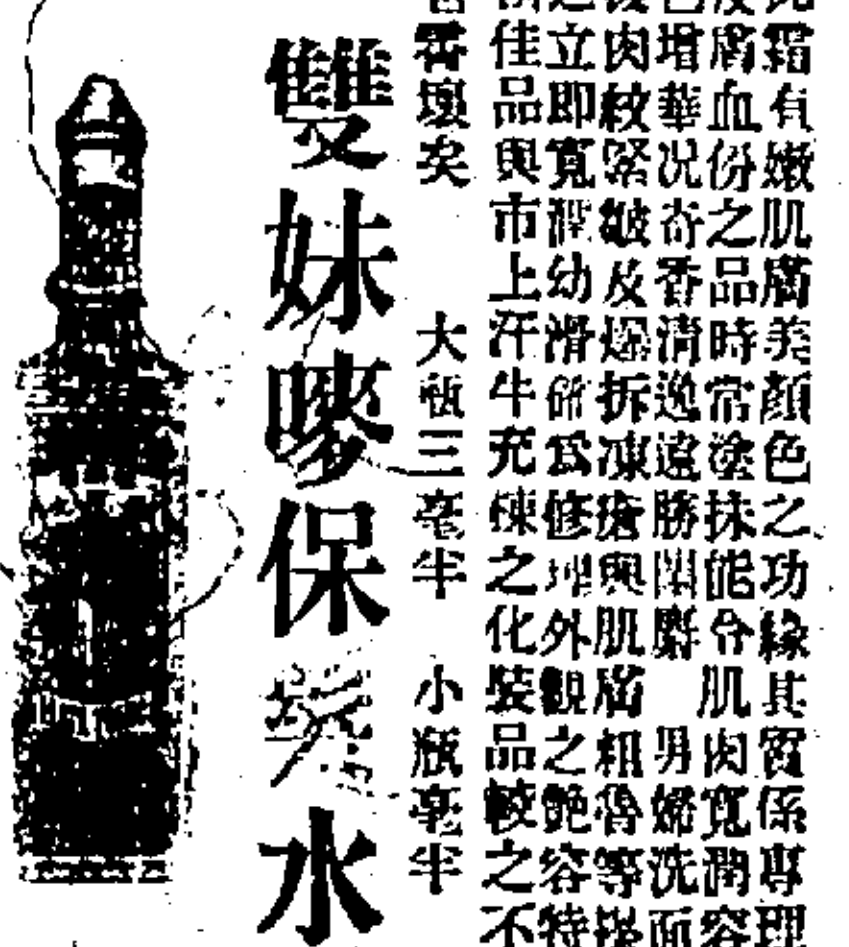 霜有嫩肌膚美顏色之功緣其質係專理
膚血份之品時常塗抹能令肌肉寬潤容
增華況奇香清逸遠勝蘭麝 男婦洗面
肉紋緊皺及爆拆凍瘡與肌膚粗魯等
立即寬潤幼滑誠為修理外觀之艷容特
佳品與市上汗牛充棟之化裝品較之不
霄壤矣 大瓶三毫半 小瓶毫半
雙妹嘜保 水